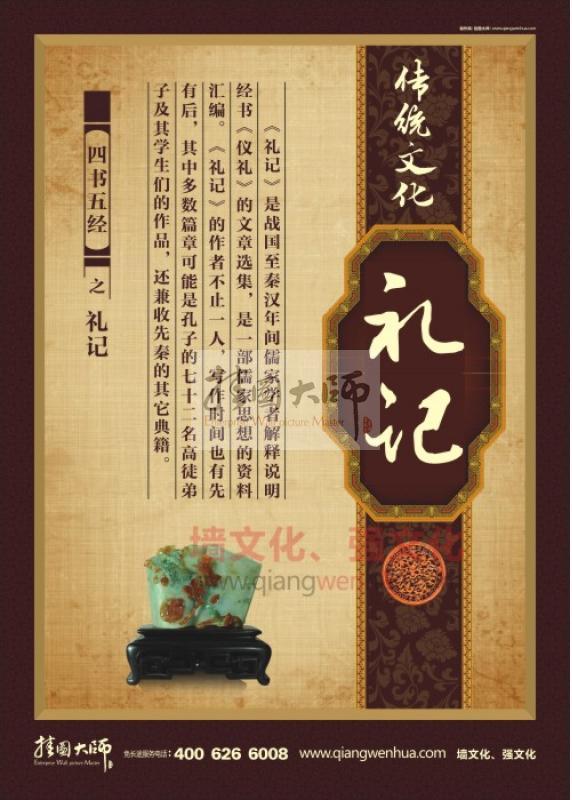 传统文化
礼记
《礼记》是战国至秦汉年间儒家学者解释说明
经书《仪礼》的文章选集，是一部儒家思想的资料
汇编。《礼记》的作者不止一人，写作时间也有先
有后，其中多数篇章可能是孔子的七十二名高徒弟
子及其学生们的作品，还兼收先秦的其它典籍。
四书五经之礼记
挂图大师
Enterprise Wall picture Master
墙文化、强文化
www.qiangwen
挂图大师
Enterprise Wall picture Master
免长途服务电话：400 626 6008
www.qiangwenhua.com
墙文化、强文化